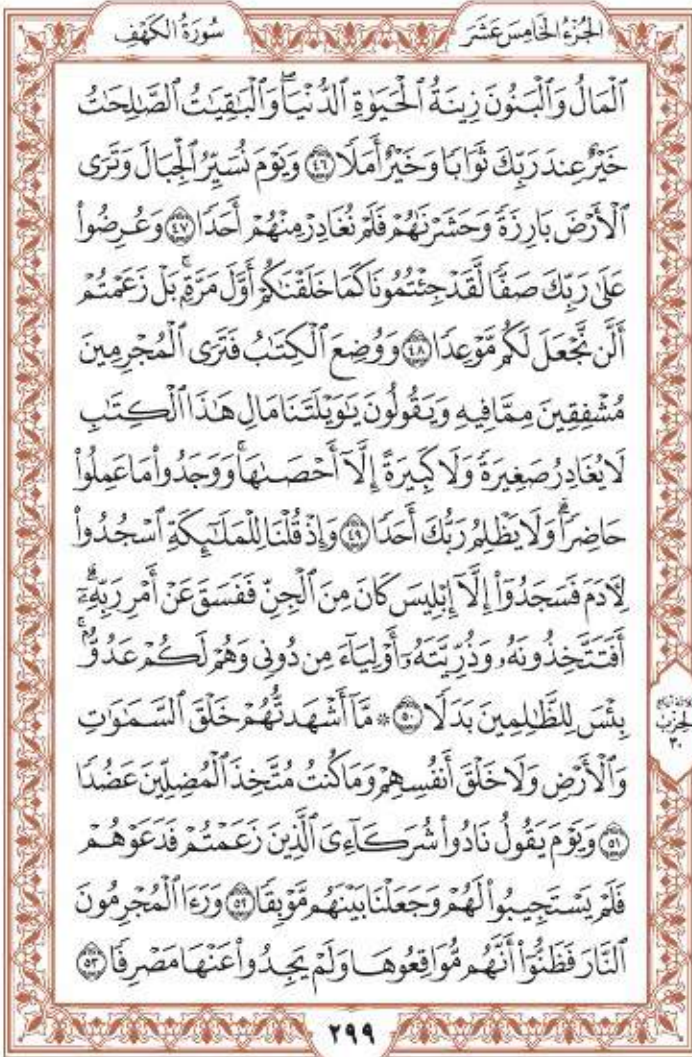 الجزء الخامس عشر
سورة الكهف
ٱلْمَالُ وَٱلْبَنُونَ زِينَةُ ٱلْحَيَوٰةِ ٱلدُّنْيَاۖ وَٱلْبَـٰقِيَـٰتُ ٱلصَّـٰلِحَـٰتُ
خَيْرٌ عِندَ رَبِّكَ ثَوَابًا وَخَيْرٌ أَمَلًا ٤٦ وَيَوْمَ نُسَيِّرُ ٱلْجِبَالَ وَتَرَى
ٱلْأَرْضَ بَارِزَةً وَحَشَرْنَـٰهُمْ فَلَمْ نُغَادِرْ مِنْهُمْ أَحَدًا ٤٧ وَعُرِضُوا۟
عَلَىٰ رَبِّكَ صَفًّا لَّقَدْ جِئْتُمُونَا كَمَا خَلَقْنَـٰكُمْ أَوَّلَ مَرَّةٍۭۚ بَلْ زَعَمْتُمْ
أَلَّن نَّجْعَلَ لَكُم مَّوْعِدًا ٤٨ وَوُضِعَ ٱلْكِتَـٰبُ فَتَرَى ٱلْمُجْرِمِينَ
مُشْفِقِينَ مِمَّا فِيهِ وَيَقُولُونَ يَـٰوَيْلَتَنَا مَالِ هَـٰذَا ٱلْكِتَـٰبِ
لَا يُغَادِرُ صَغِيرَةً وَلَا كَبِيرَةً إِلَّآ أَحْصَىٰهَاۚ وَوَجَدُوا۟ مَا عَمِلُوا۟
حَاضِرًاۗ وَلَا يَظْلِمُ رَبُّكَ أَحَدًا ٤٩ وَإِذْ قُلْنَا لِلْمَلَـٰٓئِكَةِ ٱسْجُدُوا۟
لِـَٔادَمَ فَسَجَدُوٓا۟ إِلَّآ إِبْلِيسَ كَانَ مِنَ ٱلْجِنِّ فَفَسَقَ عَنْ أَمْرِ رَبِّهِۦٓۗ
أَفَتَتَّخِذُونَهُۥ وَذُرِّيَّتَهُۥٓ أَوْلِيَآءَ مِن دُونِى وَهُمْ لَكُمْ عَدُوٌّۢۚ
بِئْسَ لِلظَّـٰلِمِينَ بَدَلًا ٥٠ ۞ مَّآ أَشْهَدتُّهُمْ خَلْقَ ٱلسَّمَـٰوَٰتِ
وَٱلْأَرْضِ وَلَا خَلْقَ أَنفُسِهِمْ وَمَا كُنتُ مُتَّخِذَ ٱلْمُضِلِّينَ عَضُدًا
٥١ وَيَوْمَ يَقُولُ نَادُوا۟ شُرَكَآءِىَ ٱلَّذِينَ زَعَمْتُمْ فَدَعَوْهُمْ
فَلَمْ يَسْتَجِيبُوا۟ لَهُمْ وَجَعَلْنَا بَيْنَهُم مَّوْبِقًا ٥٢ وَرَءَا ٱلْمُجْرِمُونَ
ٱلنَّارَ فَظَنُّوٓا۟ أَنَّهُم مُّوَاقِعُوهَا وَلَمْ يَجِدُوا۟ عَنْهَا مَصْرِفًا ٥٣
الحزب
٣٠
٢٩٩